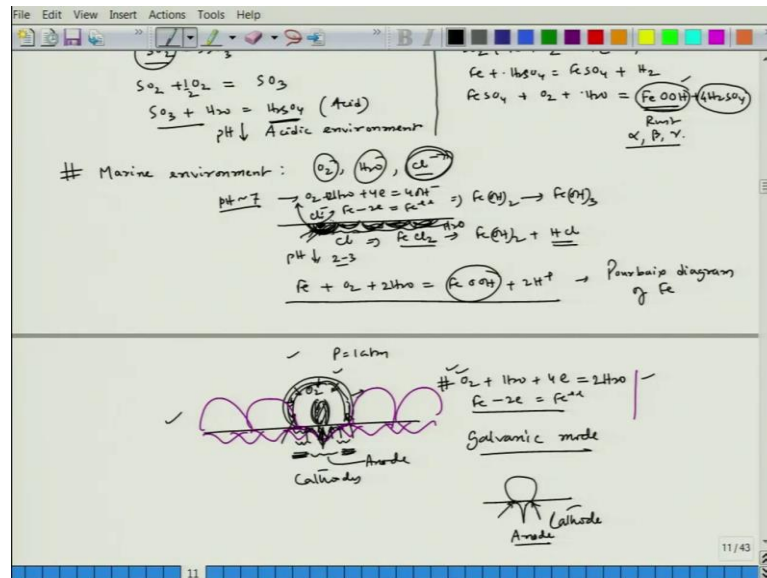 File Edit View Insert Actions Tools Help
SO2
SO2 + 1/2 O2 = SO3
SO3 + H2O = H2SO4 (Acid)
pH↓ Acidic environment
Fe + H2SO4 = FeSO4 + H2
FeSO4 + O2 + H2O = FeOOH + 4H2SO4
Rust
α, β, γ.
# Marine environment: O2, H2O, Cl-
pH~7 → O2 + 2H2O + 4e = 4OH-
Cl- Fe - 2e = Fe++ ⇒ Fe(OH)2 → Fe(OH)3
Cl ⇒ FeCl2 H2O → Fe(OH)2 + HCl
pH↓ 2-3
Fe + O2 + 2H2O = FeOOH + 2H+ → Pourbaix diagram
of Fe
P=1atm
O2
Anode
Cathodes
# O2 + H2O + 4e = 2H2O
Fe - 2e = Fe++
Galvanic mode
Cathode
Anode
11/43
11